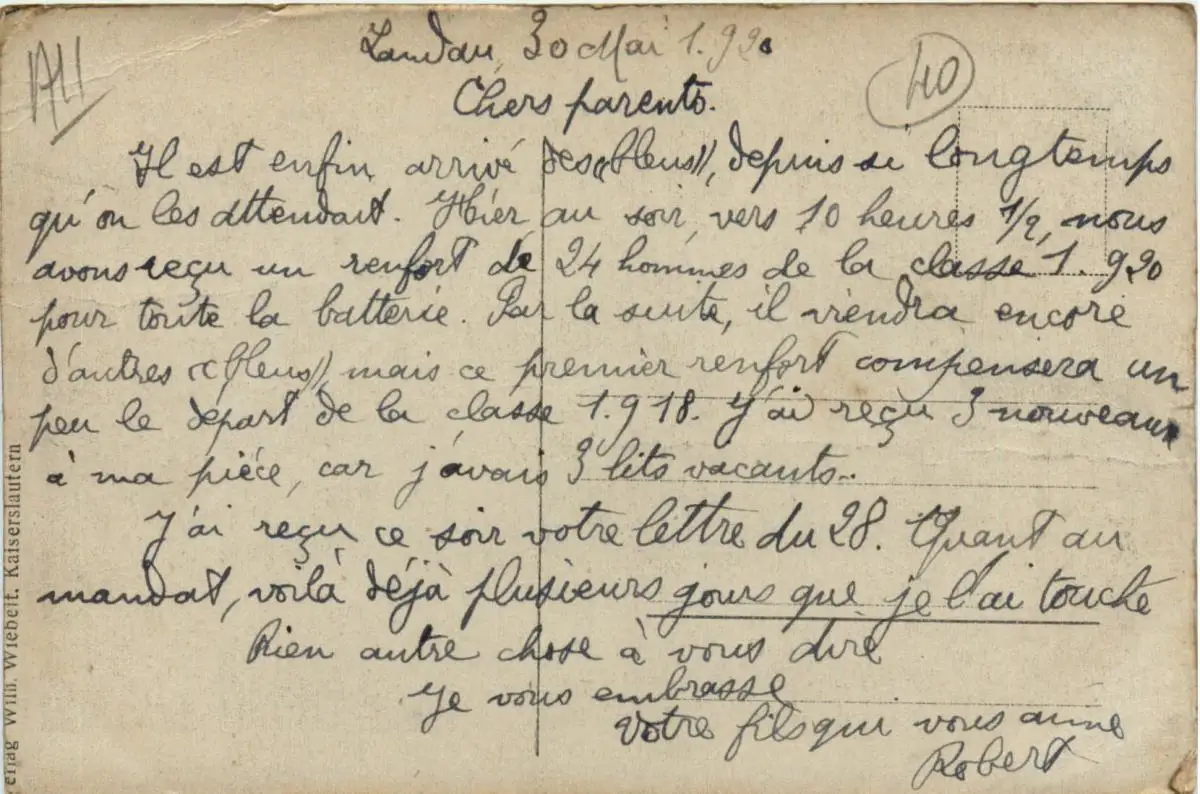 Landau, 30 Mai 1.920
40
Chers parents.
Il est enfin arrivé des « bleus », depuis si longtemps
qu'on les attendait. Hier au soir, vers 10 heures 1/2, nous
avons reçu un renfort de 24 hommes de la classe 1.920
pour toute la batterie. Par la suite, il viendra encore
d'autres « bleus », mais ce premier renfort compensera un
peu le départ de la classe 1.918. J'ai reçu 3 nouveaux
à ma pièce, car j'avais 3 lits vacants..
J'ai reçu ce soir votre lettre du 28. Quant au
mandat, voilà déjà plusieurs jours que je l'ai touché
Rien autre chose à vous dire
Je vous embrasse
Votre fils qui vous aime
Robert
Wilh. Wiebelt. Kaiserslautern